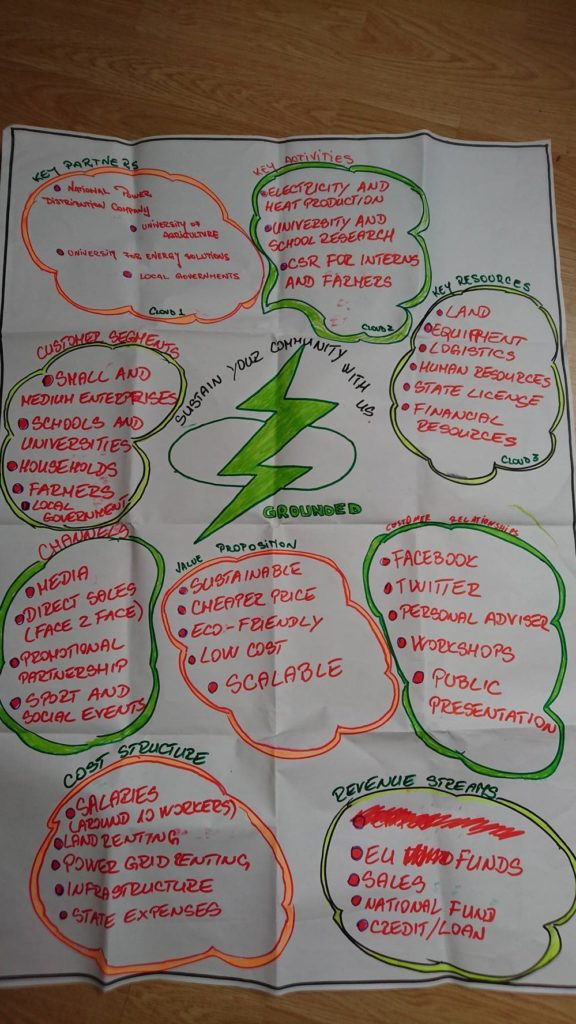 KEY PARTNERS
NATIONAL POWER
DISTRIBUTION COMPANY
UNIVERSITY OF
AGRICULTURE
UNIVERSITY FOR ENERGY SOLUTIONS
LOCAL GOVERNMENTS
CLOUD 1
KEY ACTIVITIES
ELECTRICITY AND
HEAT PRODUCTION
UNIVERSITY AND
SCHOOL RESEARCH
CSR FOR INTERNS
AND FARMERS
CLOUD 2
KEY RESOURCES
LAND
EQUIPMENT
LOGISTICS
HUMAN RESOURCES
STATE LICENSE
FINANCIAL
RESOURCES
CLOUD 3
CUSTOMER SEGMENTS
SMALL AND
MEDIUM ENTERPRISES
SCHOOLS AND
UNIVERSITIES
HOUSEHOLDS
FARMERS
LOCAL
GOVERNMENTS
SUSTAIN YOUR COMMUNITY WITH US
GROUNDED
CHANNELS
MEDIA
DIRECT SALES
(FACE 2 FACE)
PROMOTIONAL
PARTNERSHIP
SPORT AND
SOCIAL EVENTS
VALUE PROPOSITION
SUSTAINABLE
CHEAPER PRICE
ECO-FRIENDLY
LOW COST
SCALABLE
COSTUMER RELATIONSHIPS
FACEBOOK
TWITTER
PERSONAL ADVISER
WORKSHOPS
PUBLIC
PRESENTATION
COST STRUCTURE
SALARIES
(AROUND 10 WORKERS)
LAND RENTING
POWER GRID RENTING
INFRASTRUCTURE
STATE EXPENSES
REVENUE STREAMS
EU FUNDS
SALES
NATIONAL FUND
CREDIT/LOAN